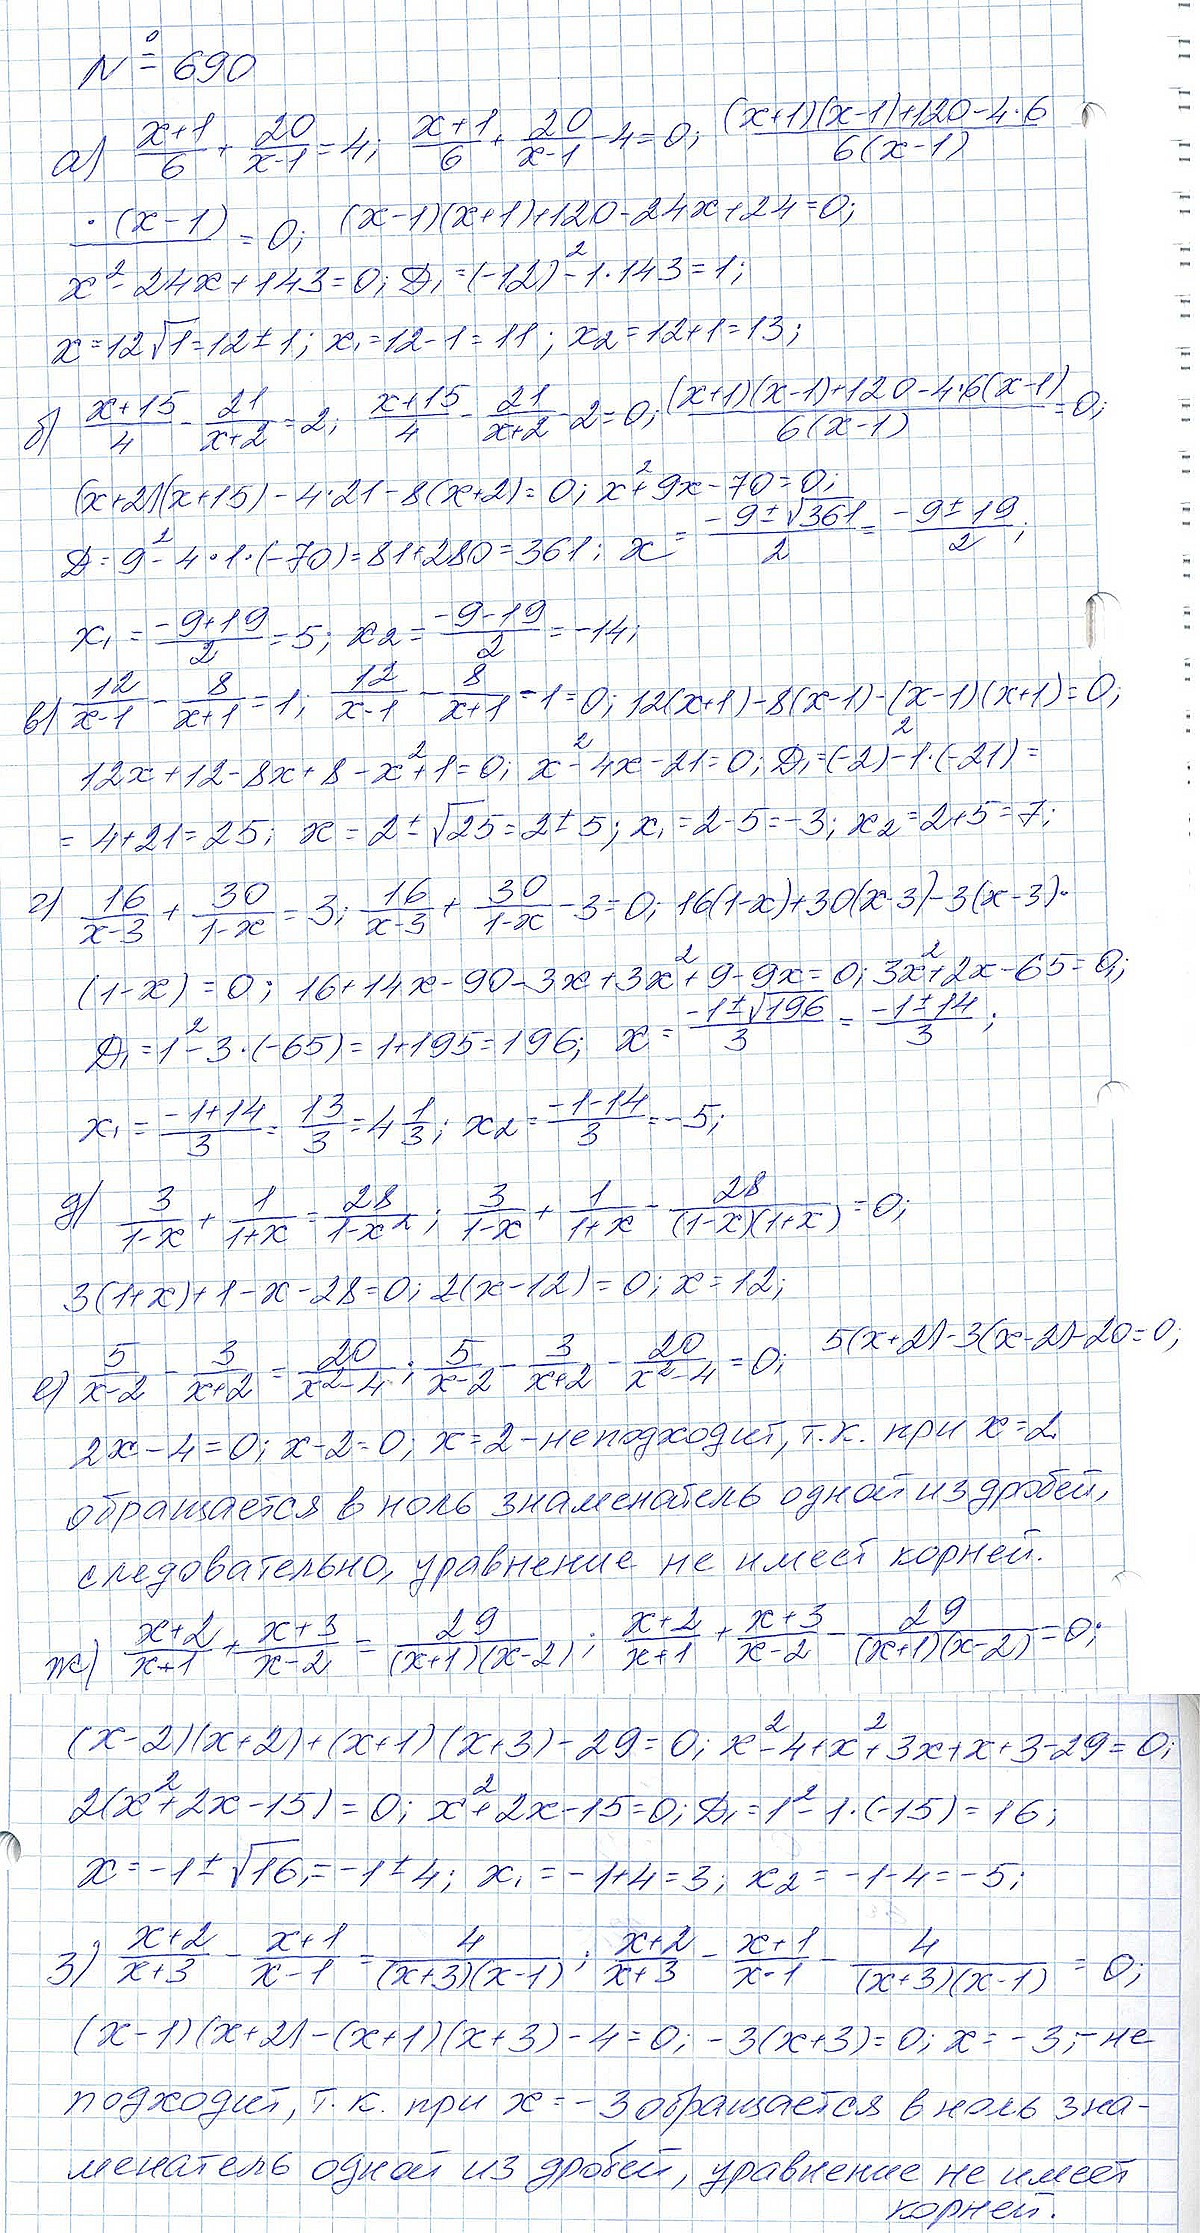 № 690
а) (x+1)/6 + 20/(x-1) = 4; (x+1)/6 + 20/(x-1) - 4 = 0; ((x+1)(x-1)+120-4·6)/(6(x-1))
·(x-1) = 0; (x-1)(x+1)+120-24x+24=0;
x²-24x+143=0; D₁=(-12)²-1·143=1;
x=12√1=12±1; x₁=12-1=11; x₂=12+1=13;
б) (x+15)/4 - 21/(x+2) = 2; (x+15)/4 - 21/(x+2) - 2 = 0; ((x+1)(x-1)+120-4·6(x-1))/(6(x-1)) = 0;
(x+2)(x+15)-4·21-8(x+2)=0; x²+9x-70=0;
D=9²-4·1·(-70)=81+280=361; x=(-9±√361)/2=(-9±19)/2;
x₁=(-9+19)/2=5; x₂=(-9-19)/2=-14;
в) 12/(x-1) - 8/(x+1) = 1; 12/(x-1) - 8/(x+1) - 1 = 0; 12(x+1)-8(x-1)-(x-1)(x+1)=0;
12x+12-8x+8-x²+1=0; x²-4x-21=0; D₁=(-2)²-1·(-21)=
=4+21=25; x=2±√25=2±5; x₁=2-5=-3; x₂=2+5=7;
г) 16/(x-3) + 30/(1-x) = 3; 16/(x-3) + 30/(1-x) - 3 = 0; 16(1-x)+30(x-3)-3(x-3)·
(1-x)=0; 16+14x-90-3x+3x²+9-9x=0; 3x²+2x-65=0;
D₁=1²-3·(-65)=1+195=196; x=(-1±√196)/3=(-1±14)/3;
x₁=(-1+14)/3=13/3=4 1/3; x₂=(-1-14)/3=-5;
д) 3/(1-x) + 1/(1+x) = 28/(1-x²); 3/(1-x) + 1/(1+x) - 28/((1-x)(1+x)) = 0;
3(1+x)+1-x-28=0; 2(x-12)=0; x=12;
е) 5/(x-2) - 3/(x+2) = 20/(x²-4); 5/(x-2) - 3/(x+2) - 20/(x²-4) = 0; 5(x+2)-3(x-2)-20=0;
2x-4=0; x-2=0; x=2-не подходит, т.к. при x=2
обращается в ноль знаменатель одной из дробей,
следовательно, уравнение не имеет корней.
ж) (x+2)/(x+1) + (x+3)/(x-2) = 29/((x+1)(x-2)); (x+2)/(x+1) + (x+3)/(x-2) - 29/((x+1)(x-2)) = 0;
(x-2)(x+2)+(x+1)(x+3)-29=0; x²-4+x²+3x+x+3-29=0;
2(x²+2x-15)=0; x²+2x-15=0; D₁=1²-1·(-15)=16;
x=-1±√16=-1±4; x₁=-1+4=3; x₂=-1-4=-5;
з) (x+2)/(x+3) - (x+1)/(x-1) = 4/((x+3)(x-1)); (x+2)/(x+3) - (x+1)/(x-1) - 4/((x+3)(x-1)) = 0;
(x-1)(x+2)-(x+1)(x+3)-4=0; -3(x+3)=0; x=-3;-не
подходит, т.к. при x=-3 обращается в ноль зна-
менатель одной из дробей, уравнение не имеет
корней.